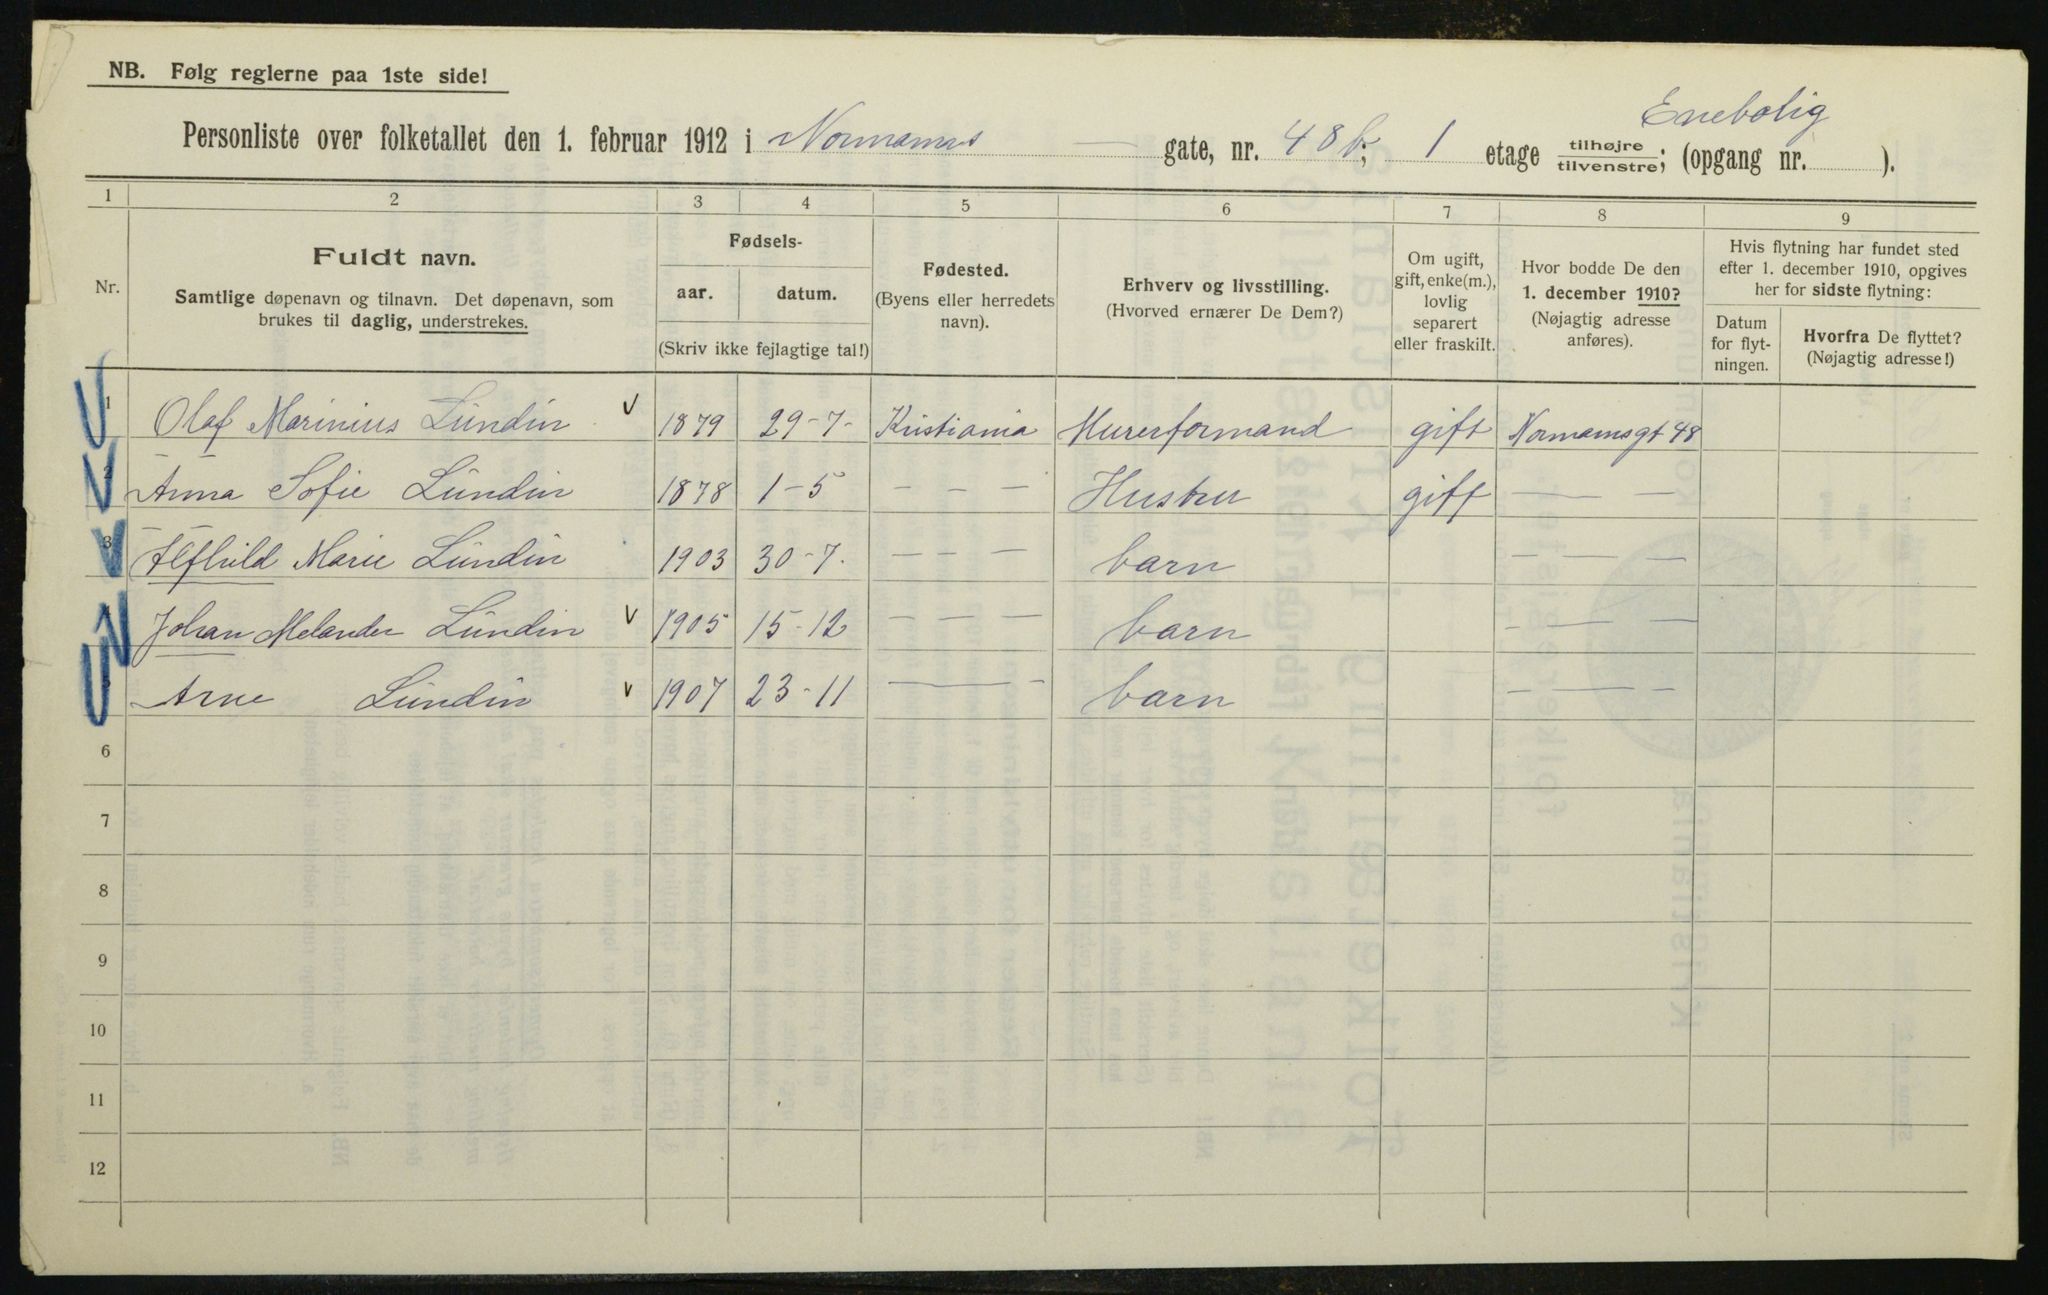 NB. Følg reglerne paa 1ste side!
Enebolig
Personliste over folketallet den 1. februar 1912 i Normanns — gate, nr. 48 b; 1 etage tilhøjre/tilvenstre; (opgang nr. ).
1 2 3 4 5 6 7 8 9
Nr.
Fuldt navn.
Samtlige døpenavn og tilnavn. Det døpenavn, som
brukes til daglig, understrekes.
Fødsels-
aar. datum.
(Skriv ikke fejlagtige tal!)
Fødested.
(Byens eller herredets
navn).
Erhverv og livsstilling.
(Hvorved ernærer De Dem?)
Om ugift,
gift, enke(m.),
lovlig
separert
eller fraskilt.
Hvor bodde De den
1. december 1910?
(Nøjagtig adresse
anføres).
Hvis flytning har fundet sted
efter 1. december 1910, opgives
her for sidste flytning:
Datum
for flyt-
ningen.
Hvorfra De flyttet?
(Nøjagtig adresse!)
1 Olaf Marinius Lundin 1879 29-7- Kristiania Murerformand gift Normannsgt 48
2 Anna Sofie Lundin 1878 1-5 – – – Hustru gift — — —
3 Alfhild Marie Lundin 1903 30-7. — — — barn — — —
4 Johan Melander Lundin 1905 15-12 — — — barn — — —
5 Arne Lundin 1907 23-11 — — — barn — — —
6
7
8
9
10
11
12